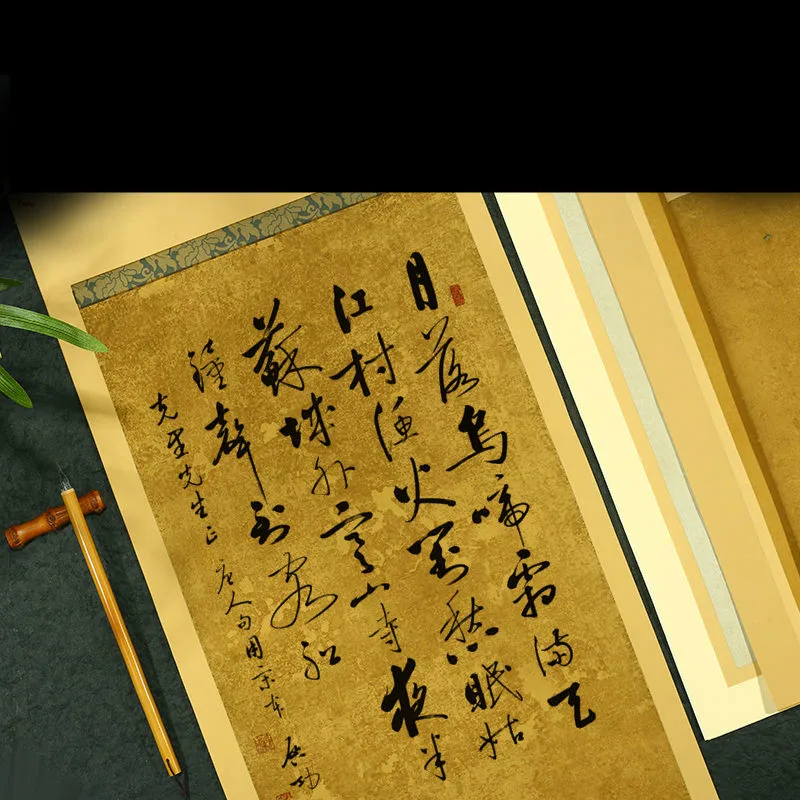 月落烏啼霜滿天
江村漁火對愁眠姑
蘇城外寒山寺夜半
鐘聲到客船
克星先生正
唐人句用宋本 啟功